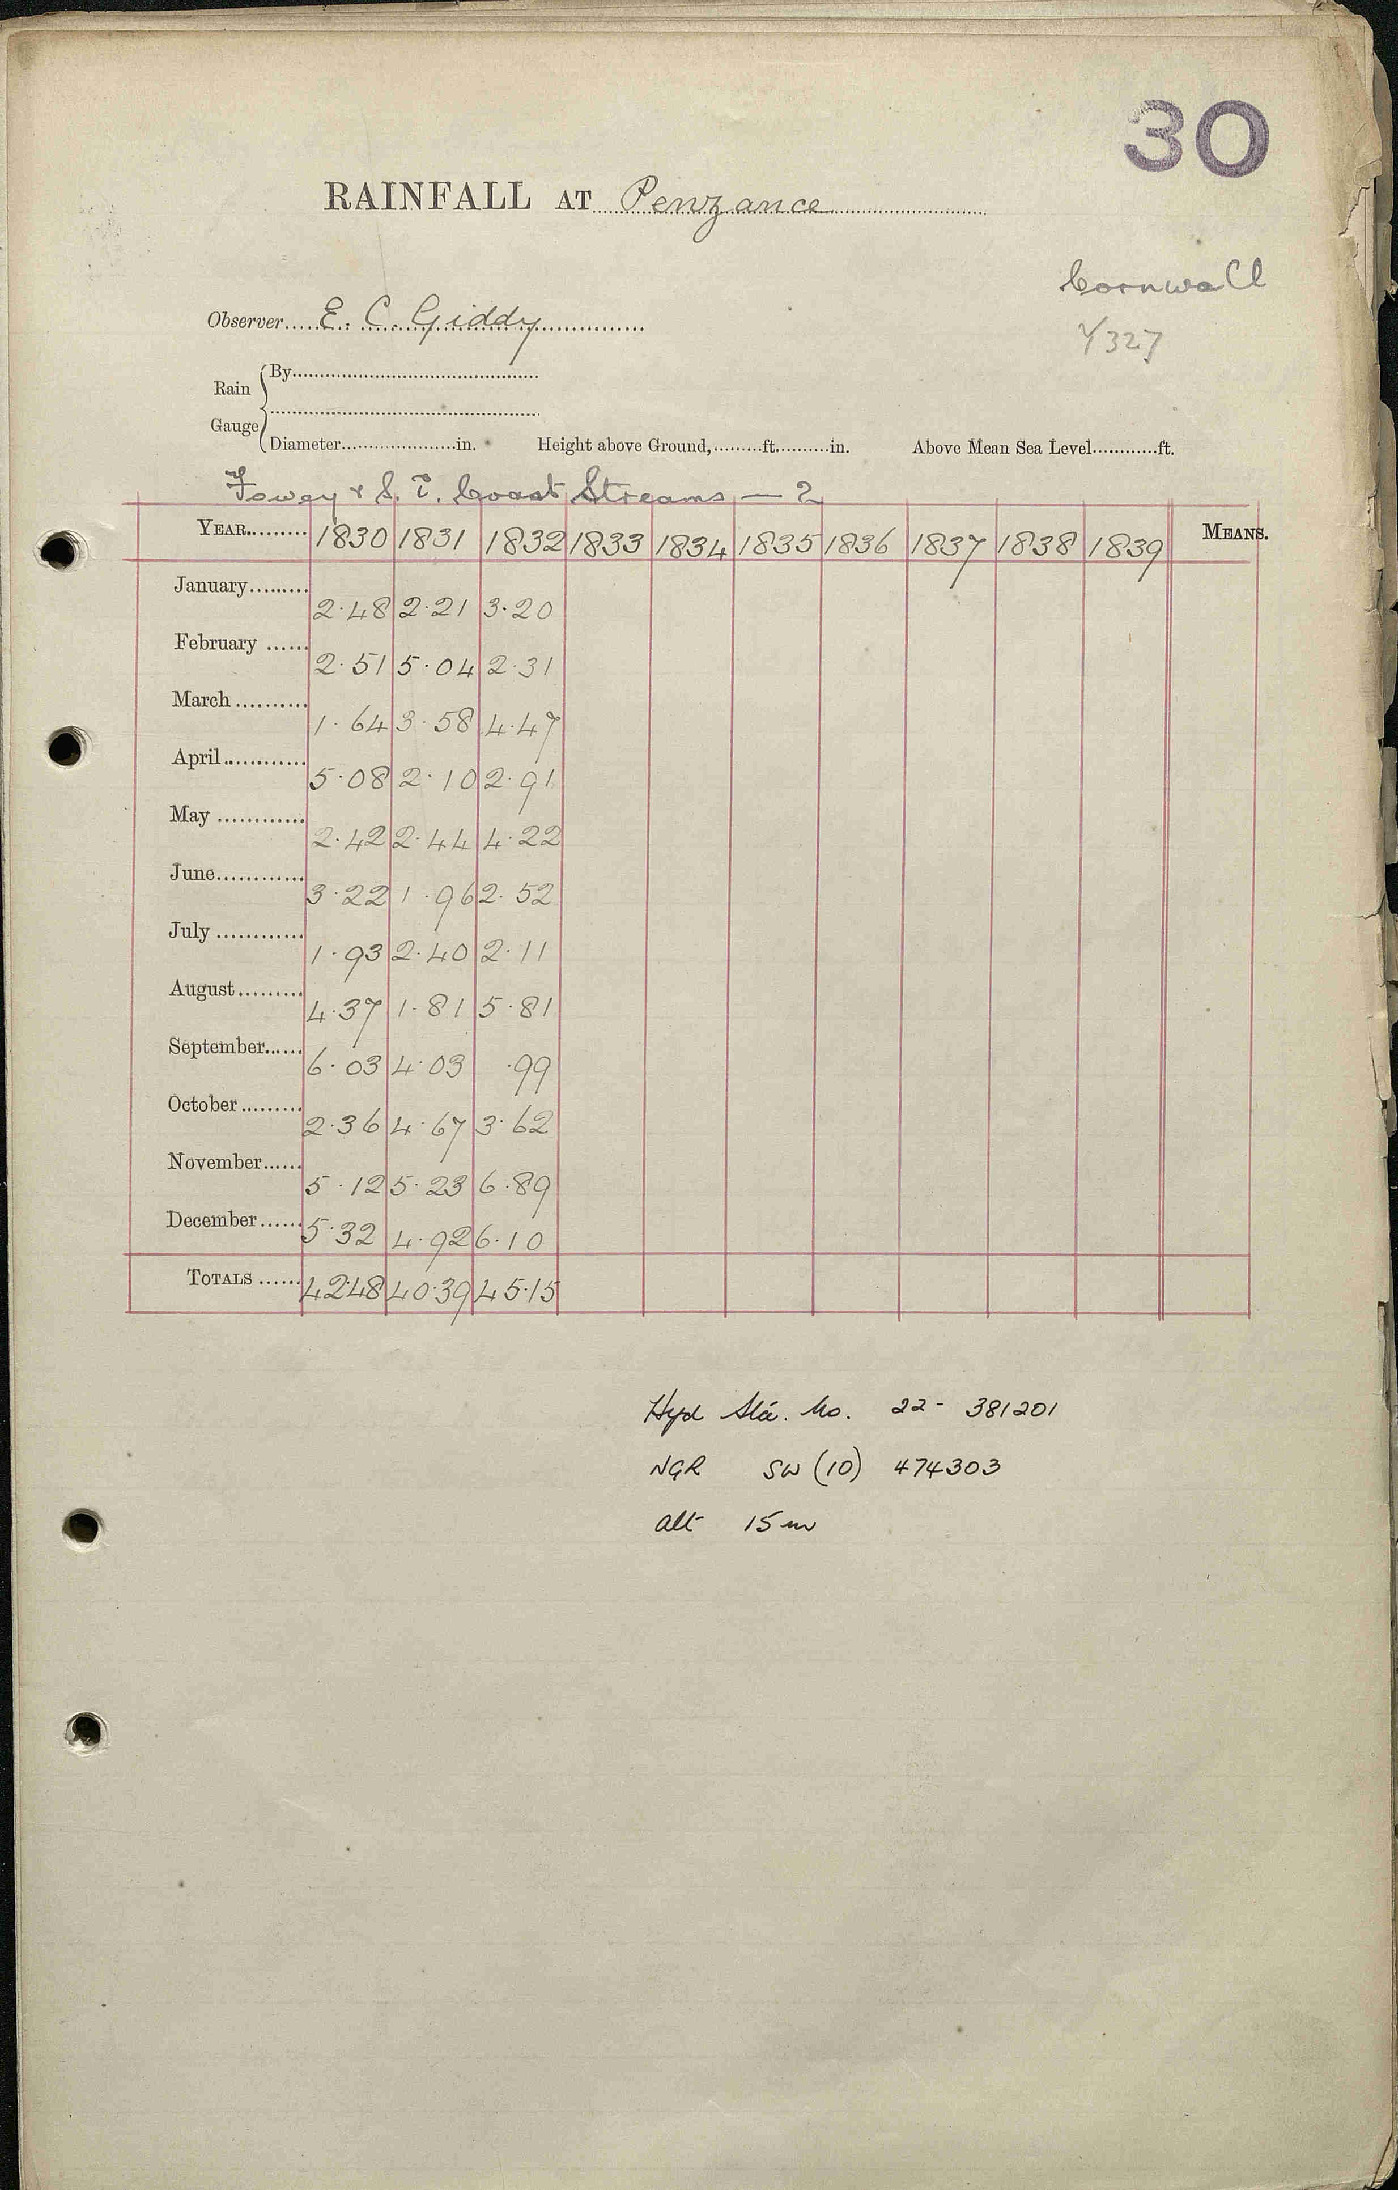 30
RAINFALL AT Penzance
Cornwall
Observer E. C. Giddy
Y327
Rain Gauge
By
Diameter in. Height above Ground, ft. in. Above Mean Sea Level ft.
Fowey & S. I. Coast Streams — 2
YEAR 1830 1831 1832 1833 1834 1835 1836 1837 1838 1839 MEANS.
January 2.48 2.21 3.20
February 2.51 5.04 2.31
March 1.64 3.58 4.47
April 5.08 2.10 2.91
May 2.42 2.44 4.22
June 3.22 1.96 2.52
July 1.93 2.40 2.11
August 4.37 1.81 5.81
September 6.03 4.03 .99
October 2.36 4.67 3.62
November 5.12 5.23 6.89
December 5.32 4.92 6.10
TOTALS 42.48 40.39 45.15
Hyd Sta. No. 22- 381201
NGR SW (10) 474303
alt 15m